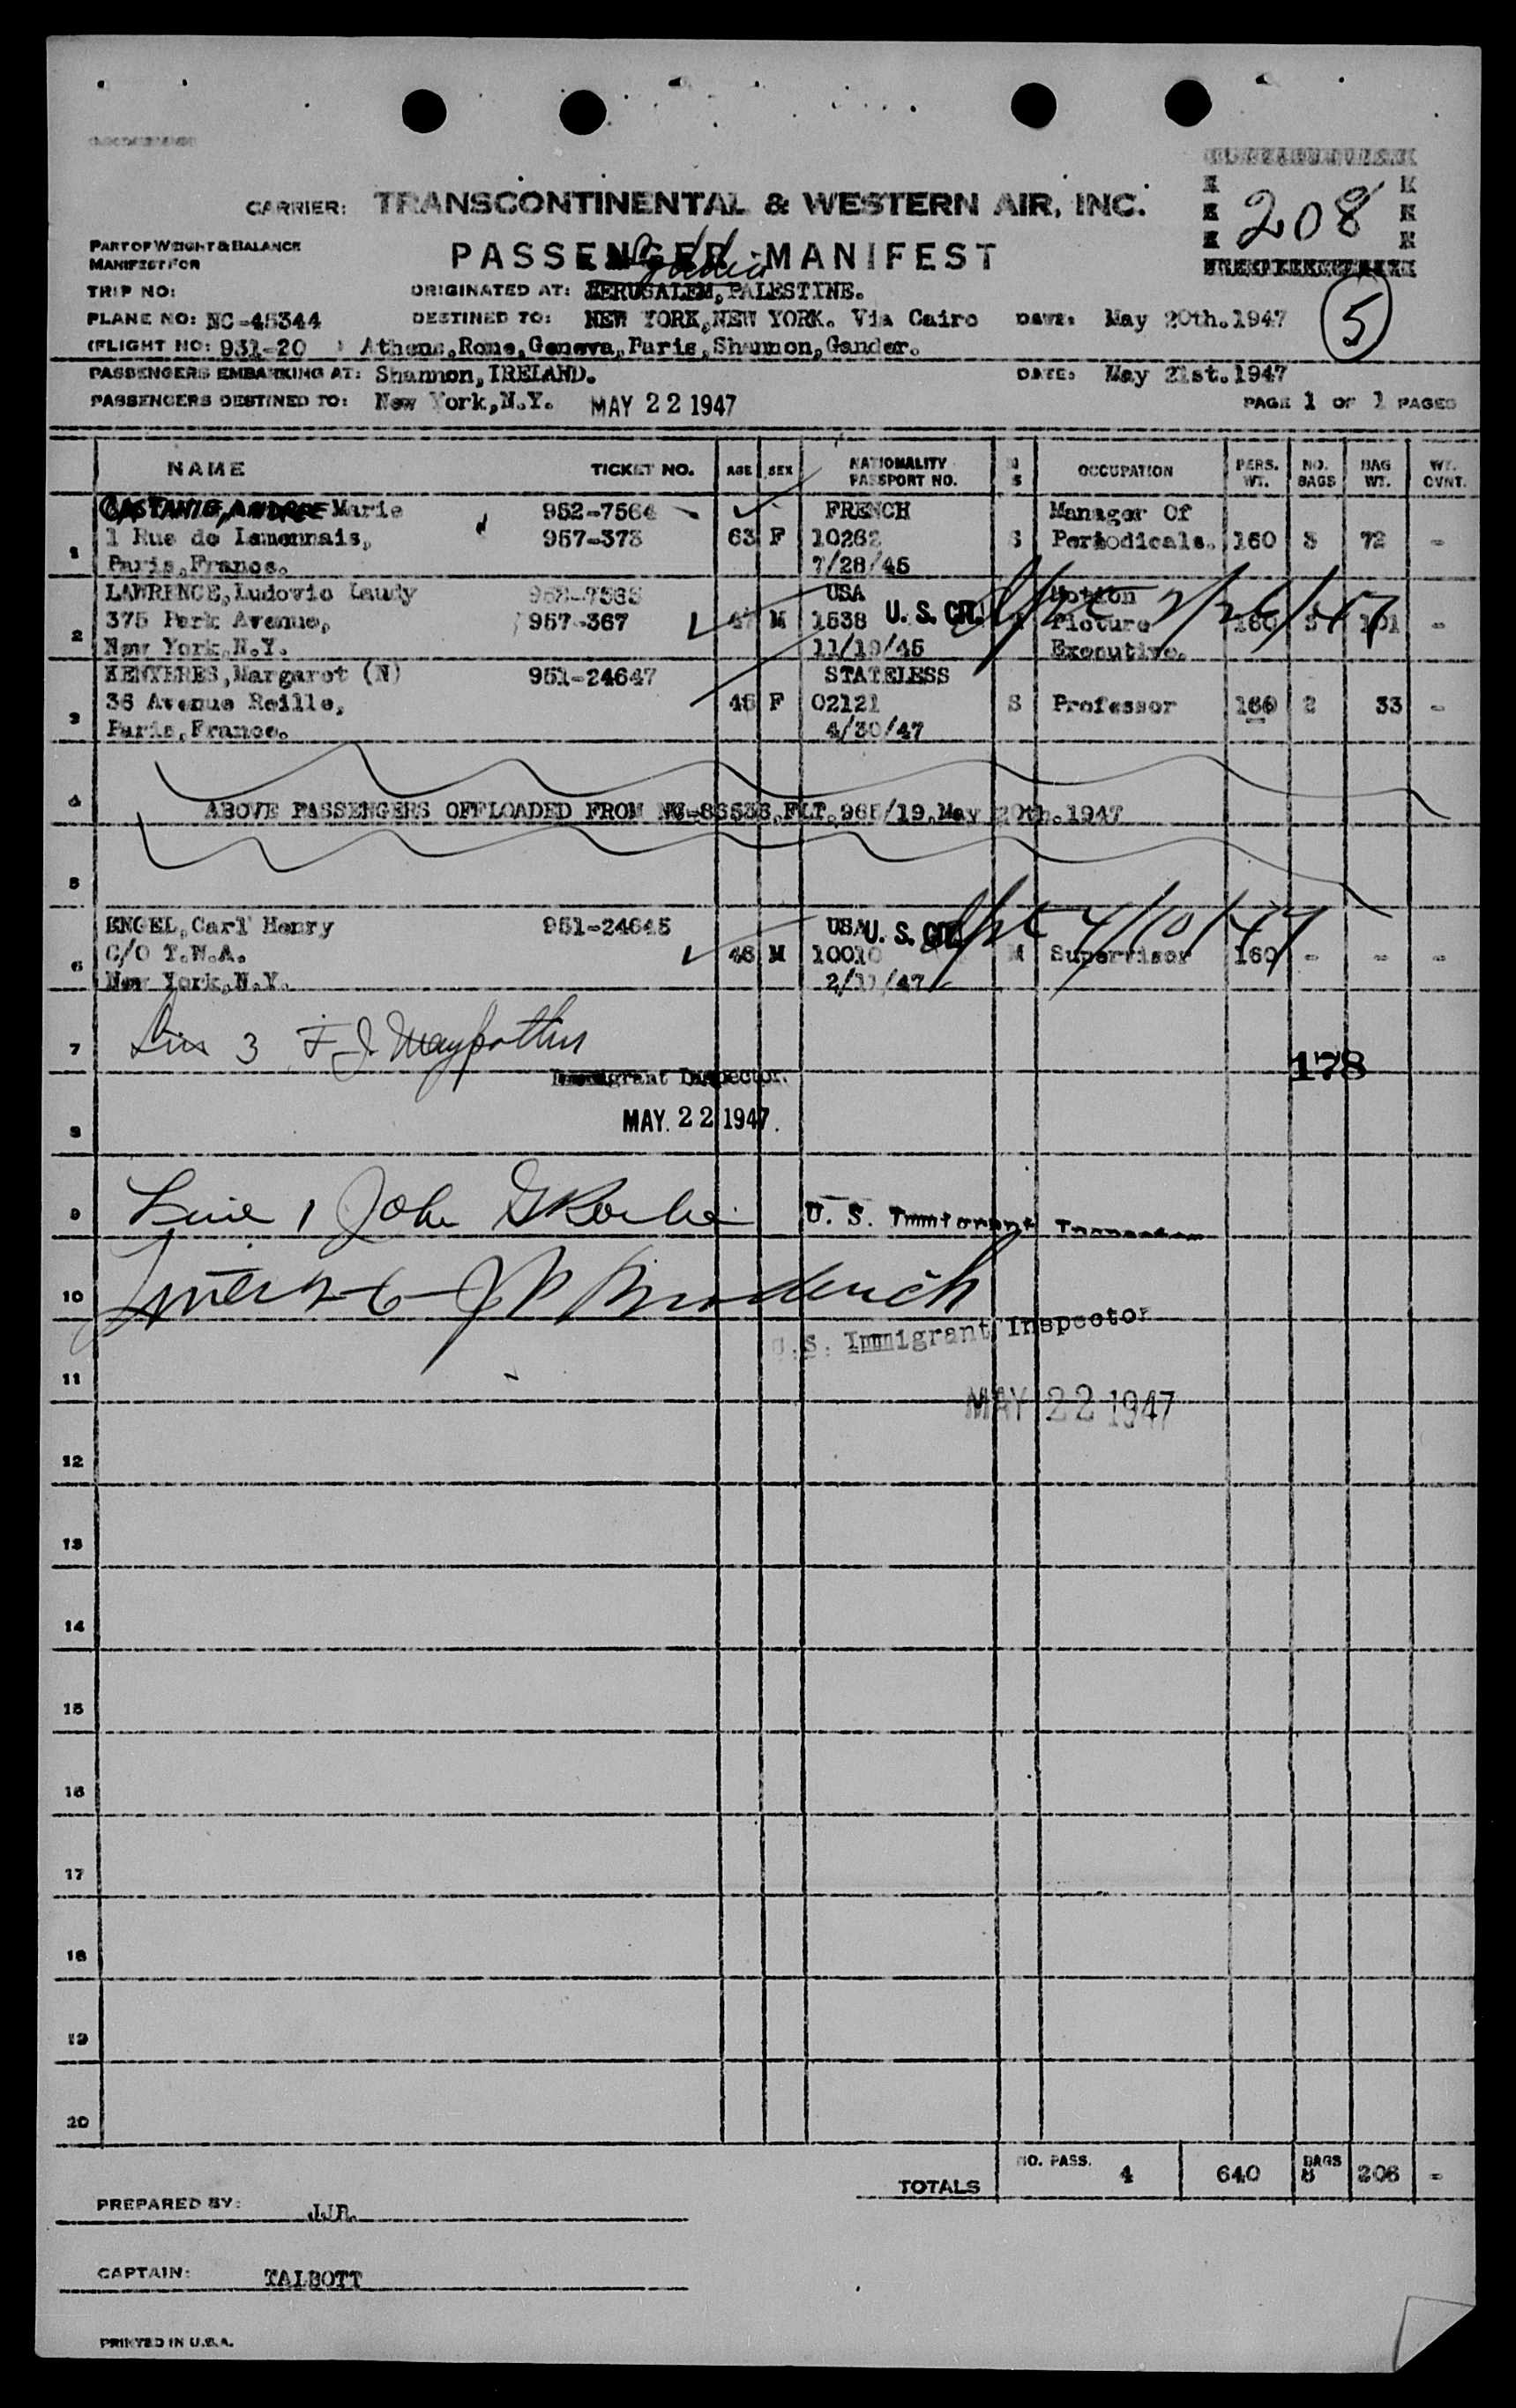 208
CARRIER: TRANSCONTINENTAL & WESTERN AIR, INC.
PART OF WEIGHT & BALANCE
MANIFEST FOR
PASSENGER MANIFEST
TRIP NO:
ORIGINATED AT: JERUSALEM, PALESTINE.
PLANE NO: NC-45344 DESTINED TO: NEW YORK, NEW YORK. Via Cairo DATE: May 20th. 1947
5
(FLIGHT NO: 931-20 ) Athens, Rome, Geneva, Paris, Shannon, Gander.
PASSENGERS EMBARKING AT: Shannon, IRELAND. DATE: May 21st. 1947
PASSENGERS DESTINED TO: New York, N.Y. MAY 22 1947 PAGE 1 OF 1 PAGES
NAME TICKET NO. AGE SEX NATIONALITY PASSPORT NO. M S OCCUPATION PERS. WT. NO. BAGS BAG WT. WT. OVNT.
CASTANIE, ANDREE Marie 952-7564 FRENCH Manager Of
1 1 Rue de Lamennais, 957-373 63 F 10262 S Periodicals. 160 3 72 -
Paris, France. 7/28/45
LAWRENCE, Ludovic Laudy USA Motion
2 375 Park Avenue, 957-367 47 M 1538 U. S. CIT. Picture 160 3 101 -
New York, N.Y. 11/19/45 Executive.
KENYERES, Margaret (N) 951-24647 STATELESS
3 36 Avenue Reille, 46 F 02121 S Professor 160 2 33 -
Paris, France. 4/30/47
4 ABOVE PASSENGERS OFFLOADED FROM May 20th. 1947
5
ENGEL, Carl Henry 951-24645 USA U. S. CIT. 4/10/47
6 C/O T.W.A. 46 M 10010 M Supervisor 160 - - -
New York, N.Y. 2/11/47
7 3 F. J.
178
Immigrant Inspector.
8 MAY 22 1947.
9 Line 1 John U. S. Immigrant Inspector
10 Lines 2-6 J P Broderick
U.S. Immigrant Inspector
11
MAY 22 1947
12
13
14
15
16
17
18
19
20
TOTALS NO. PASS. 4 640 BAGS 8 206 -
PREPARED BY: JJR.
CAPTAIN: TALBOTT
PRINTED IN U.S.A.